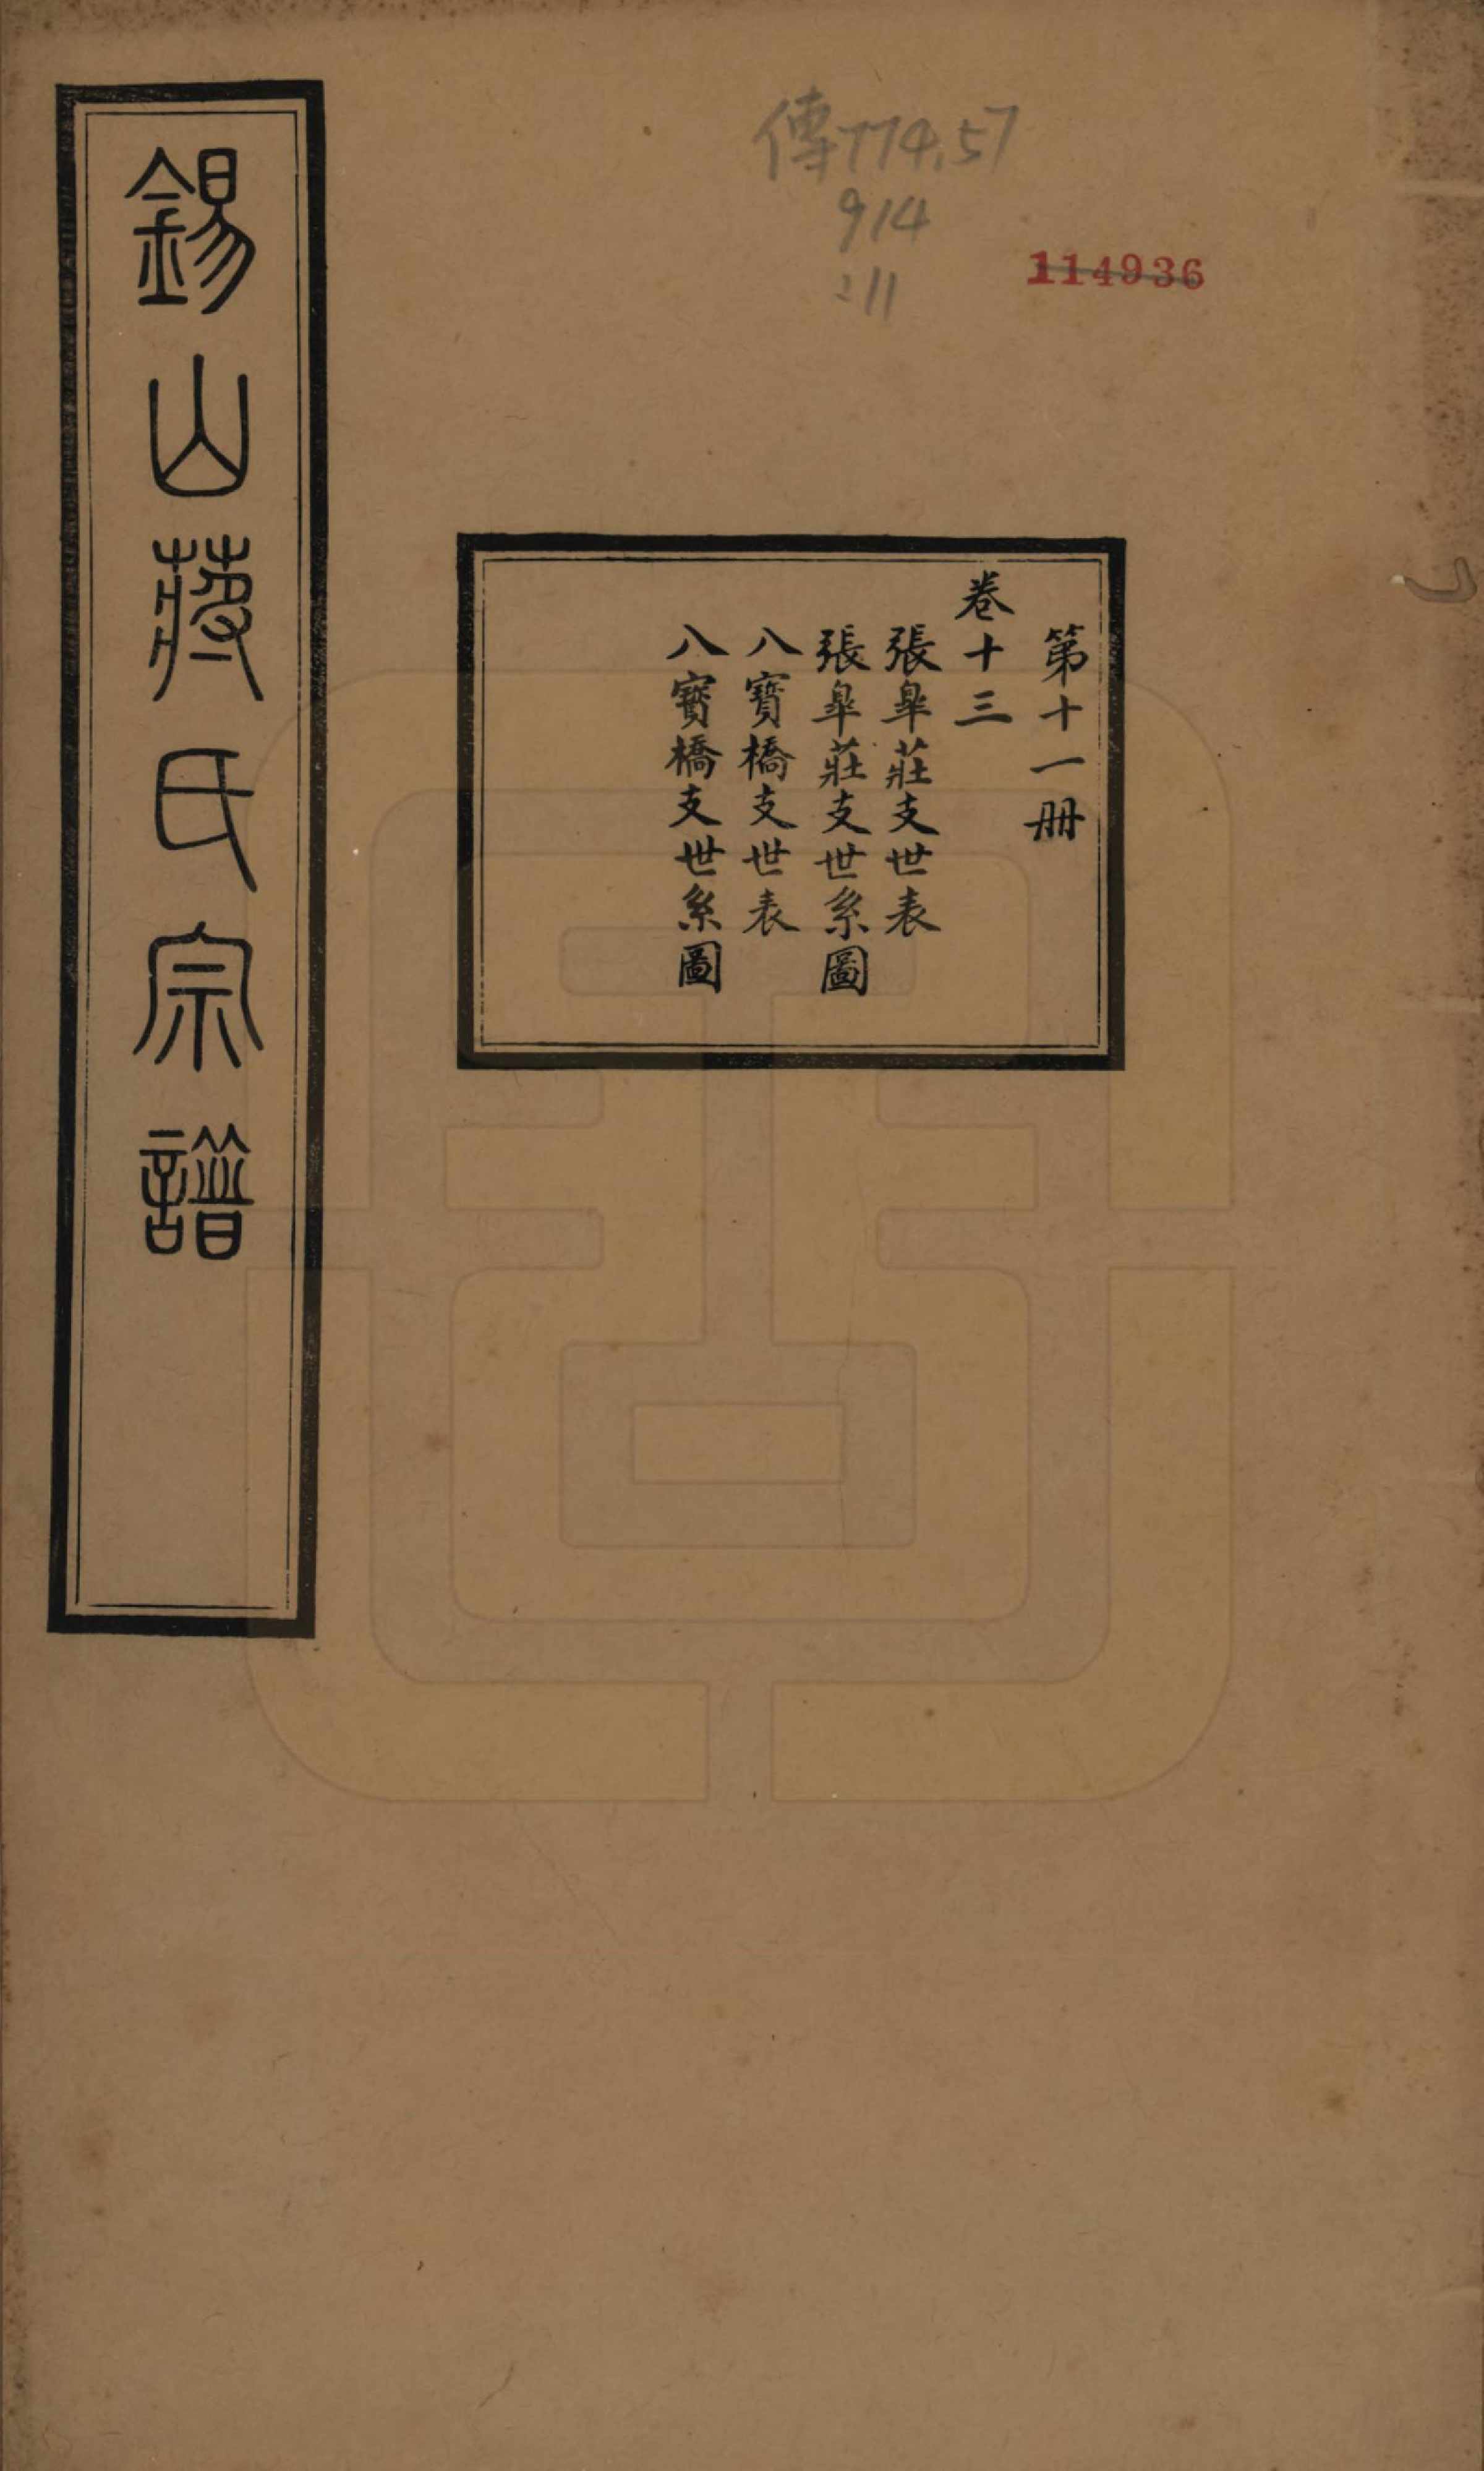 錫山蔣氏宗譜
傳774.57
914
:11
114936
第十一册
卷十三
張皐莊支世表
張皐莊支世系圖
八寶橋支世表
八寶橋支世系圖